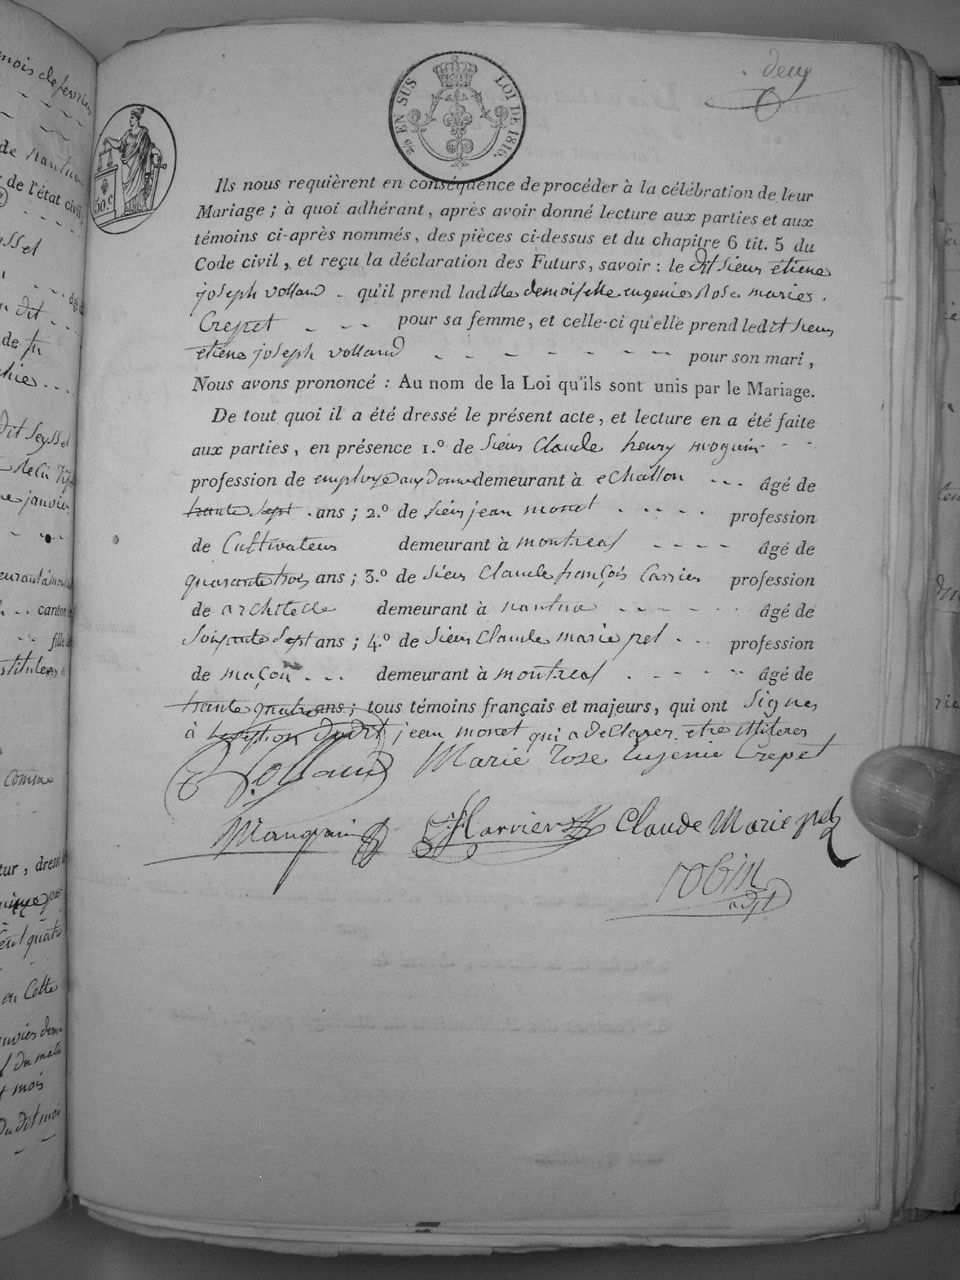 deux
20 EN SUS LOI DE 1816.
50.c
Ils nous requièrent en conséquence de procéder à la célébration de leur
Mariage ; à quoi adhérant, après avoir donné lecture aux parties et aux
témoins ci-après nommés, des pièces ci-dessus et du chapitre 6 tit. 5 du
Code civil, et reçu la déclaration des Futurs, savoir : le dit sieur etiene
joseph volland qu'il prend ladite demoiselle eugenie Rose marie
Crepet pour sa femme, et celle-ci qu'elle prend ledit sieur
etiene joseph volland pour son mari,
Nous avons prononcé : Au nom de la Loi qu'ils sont unis par le Mariage.
De tout quoi il a été dressé le présent acte, et lecture en a été faite
aux parties, en présence 1.º de sieur Claude henry
profession de employé aux demeurant à echallon âgé de
trante sept ans ; 2.º de sieur jean monet profession
de Cultivateur demeurant à montreal âgé de
quarante trois ans ; 3.º de sieur Claude françois profession
de architecte demeurant à nantua âgé de
soixante sept ans ; 4.º de sieur Claude marie pel profession
de maçon demeurant à montreal âgé de
trante quatre ans ; tous témoins français et majeurs, qui ont signes
à lexeption dudit jean monet qui a declarer etre illiteres
Volland Marie Rose Eugenie Crepet
Claude Marie pel
robin
adjt
mois de fevrier
de nantua
de l'état civil
dit
de
dit seyssel
janvier
canton
fille
Comme
quatre
cette
mois
du dit mois